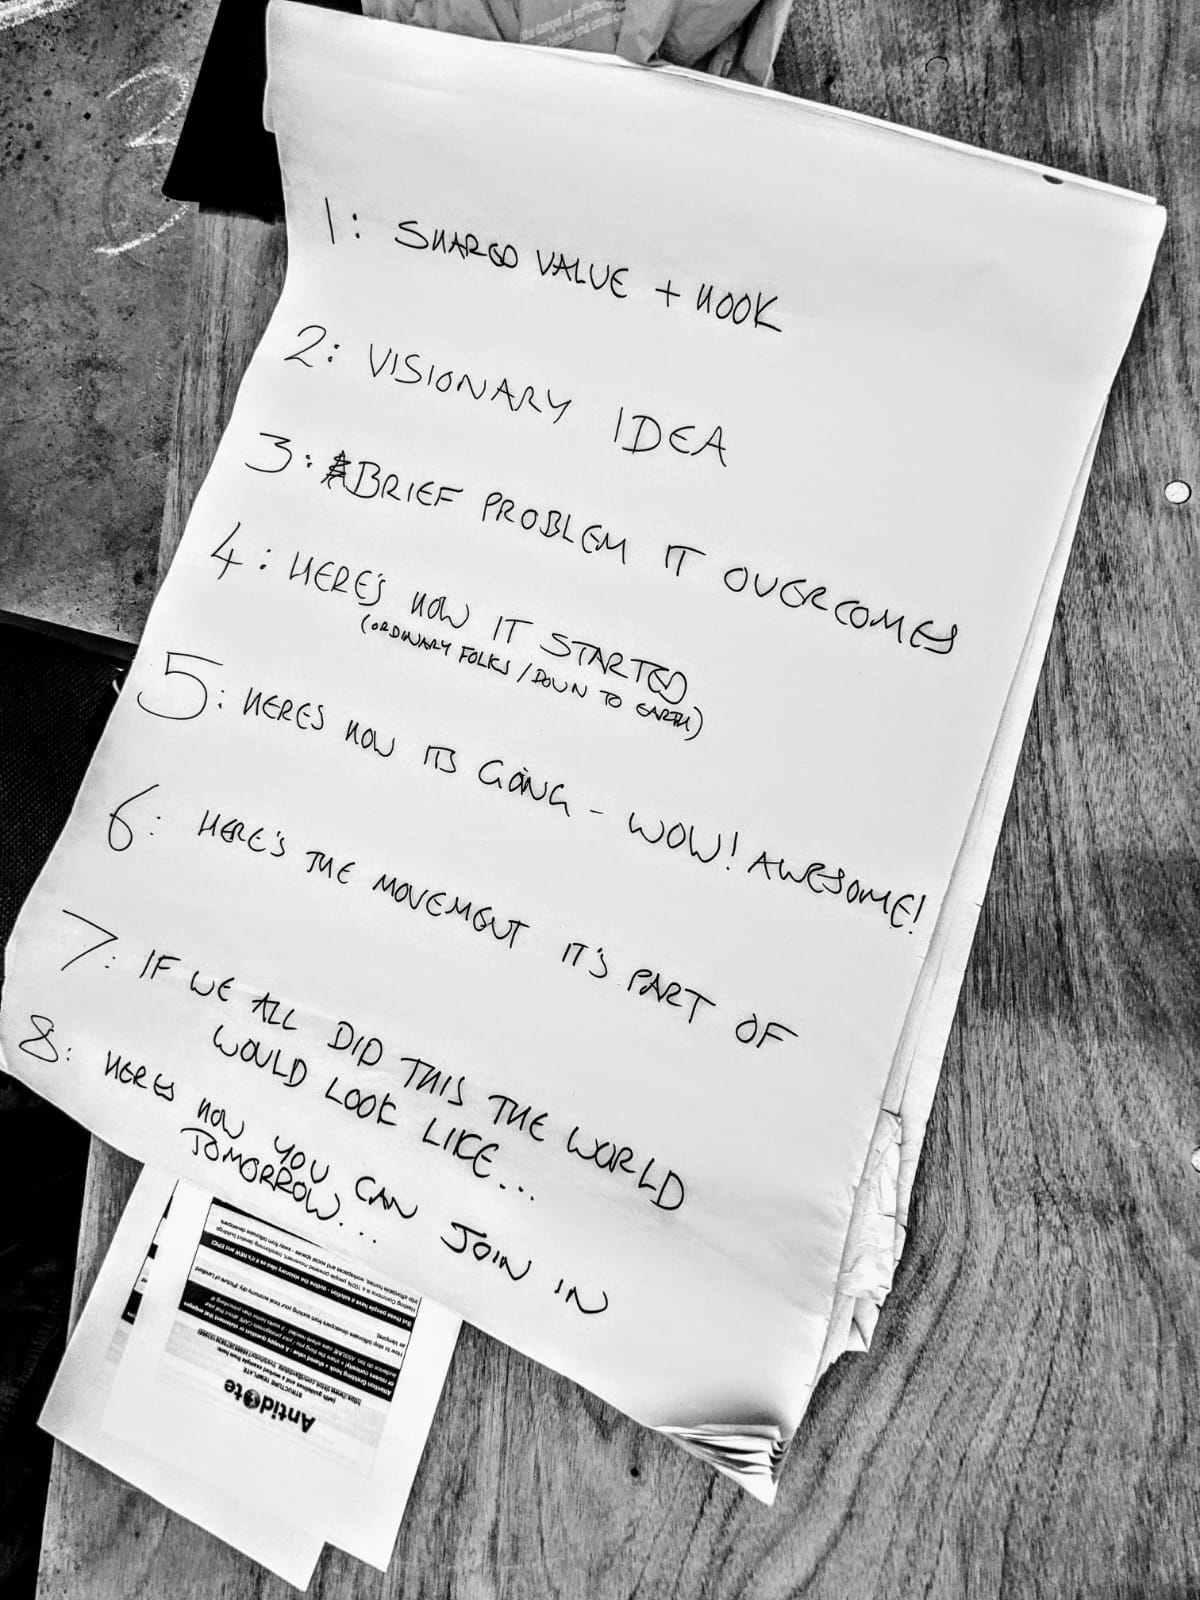 1: SHARED VALUE + HOOK
2: VISIONARY IDEA
3: BRIEF PROBLEM IT OVERCOMES
4: HERE'S HOW IT STARTED
(ORDINARY FOLKS / DOWN TO EARTH)
5: HERES HOW ITS GOING - WOW! AWESOME!
6: HERE'S THE MOVEMENT IT'S PART OF
7: IF WE ALL DID THIS THE WORLD
WOULD LOOK LIKE...
8: HERES HOW YOU CAN JOIN IN
TOMORROW...
Antidote
STRUCTURE TEMPLATE